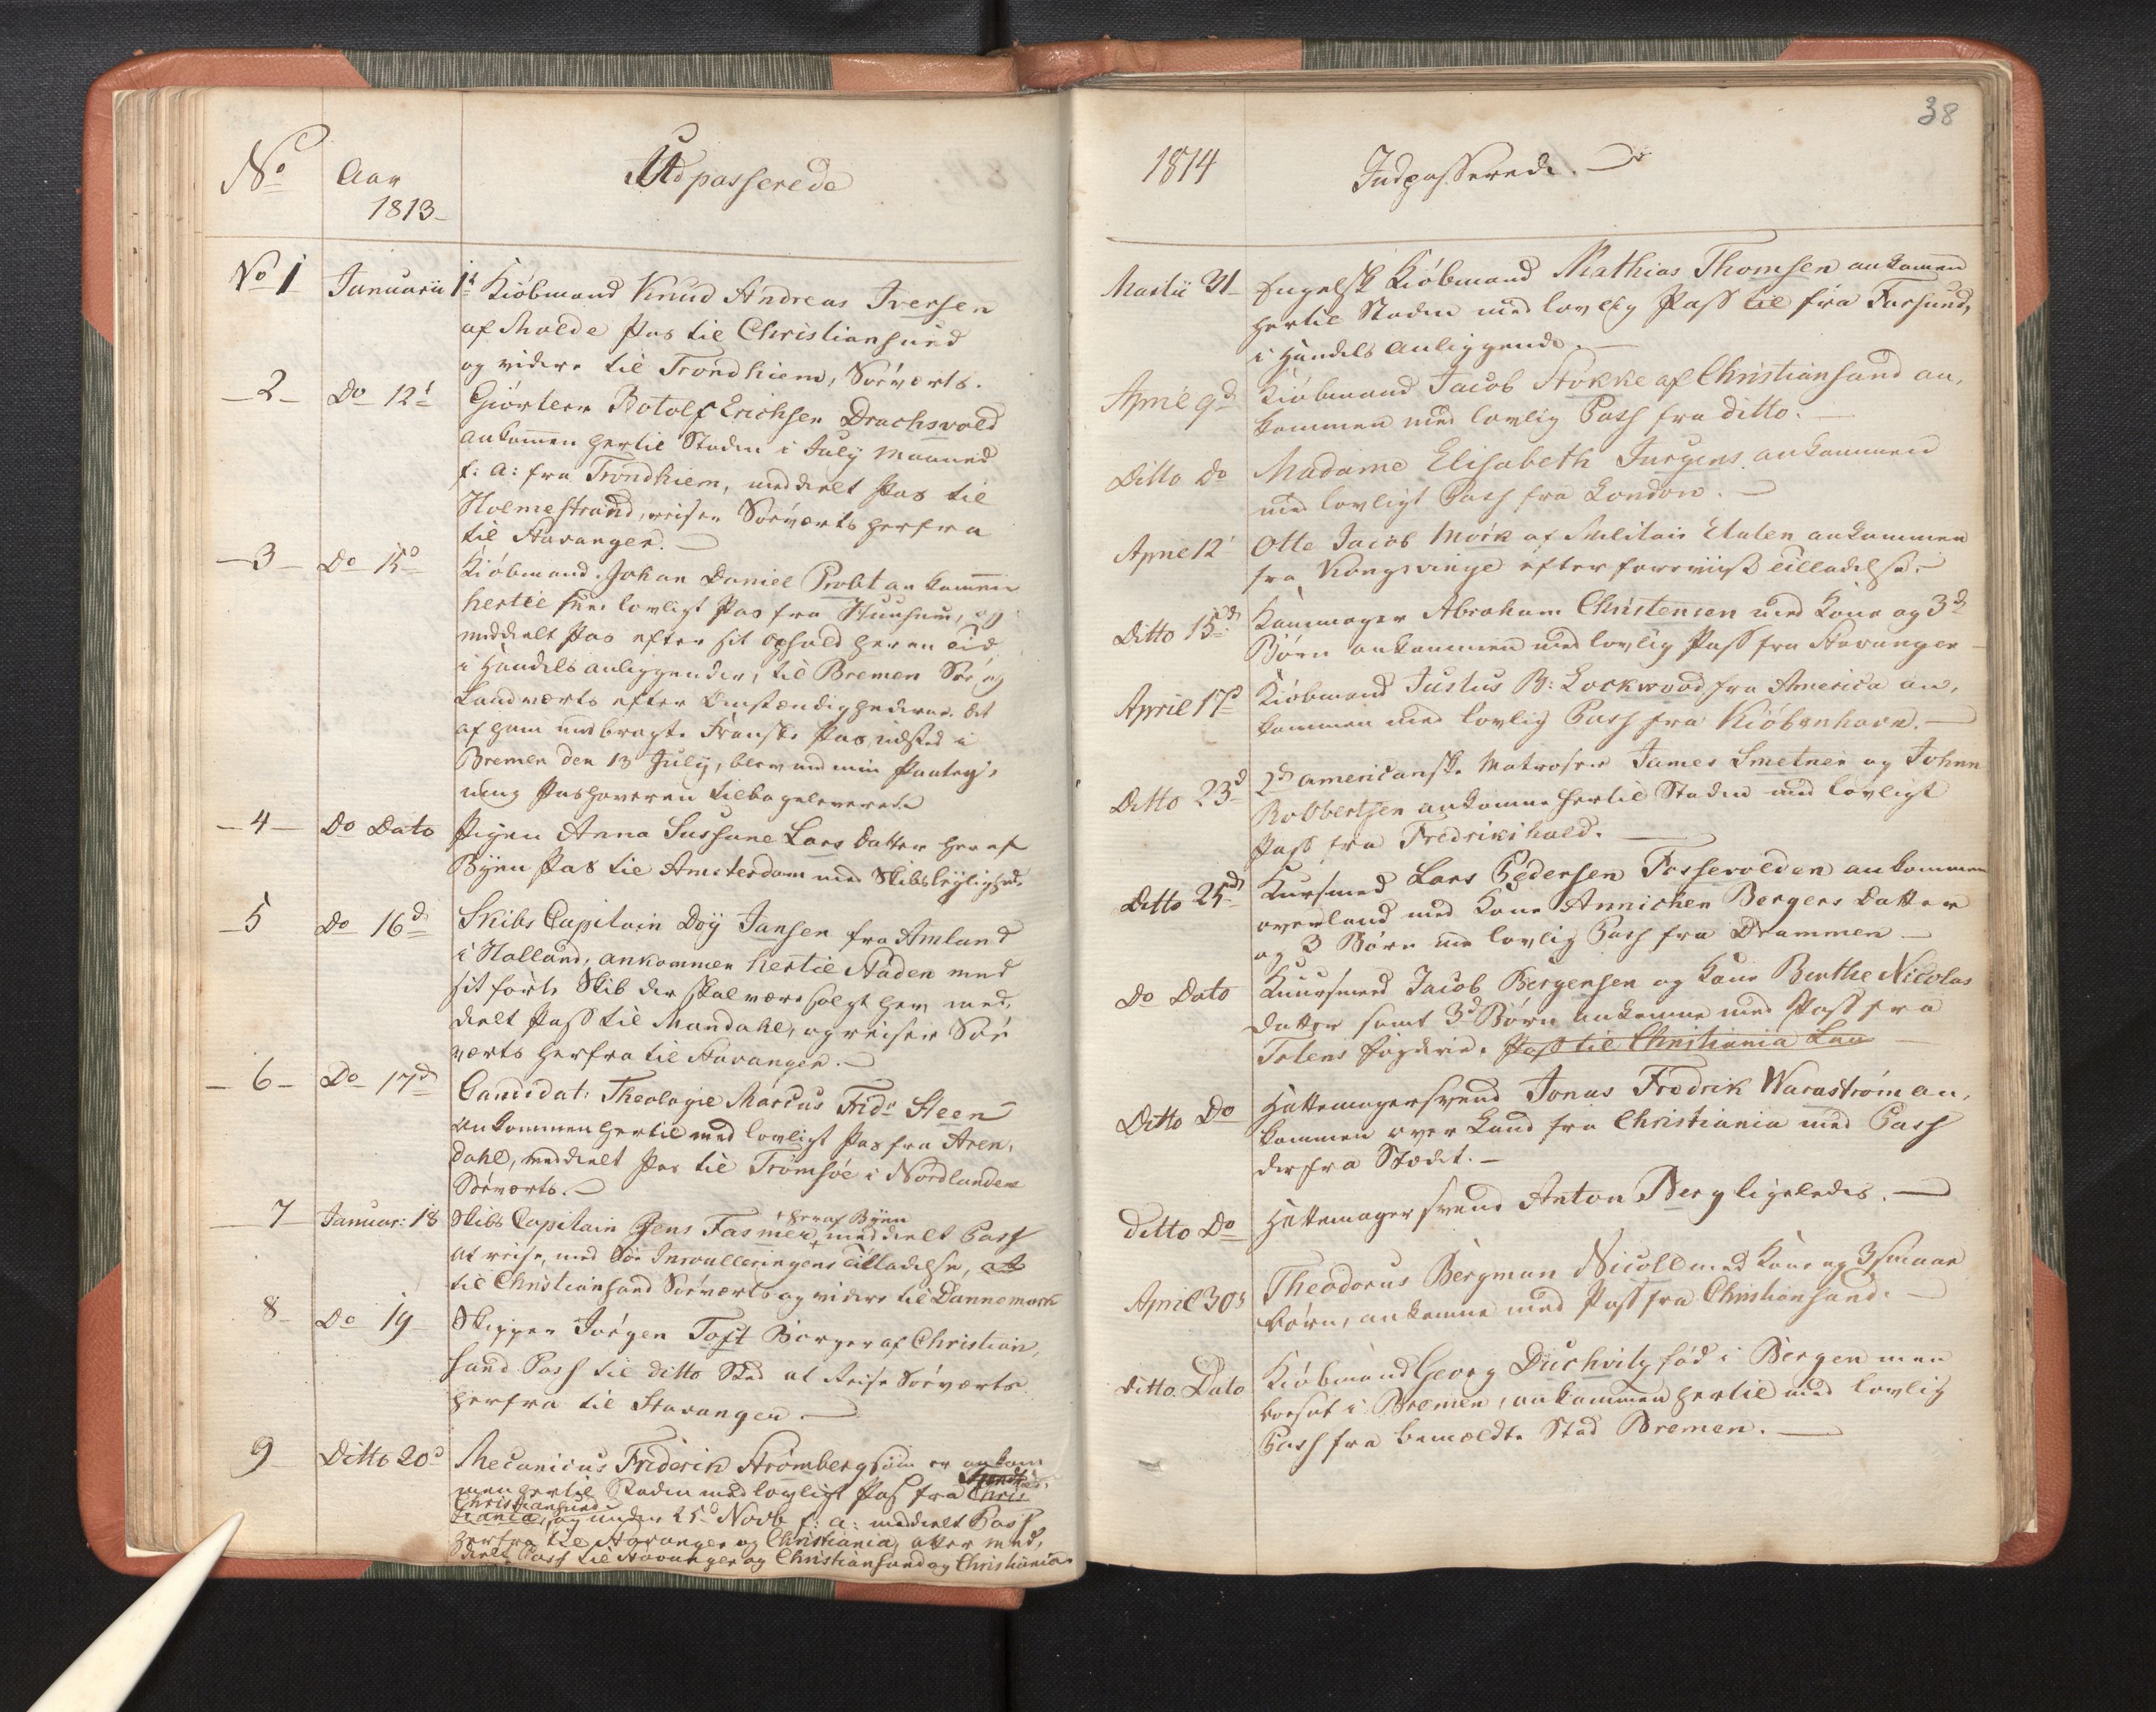 No Aar Udpasserede
1813
No 1 Januarii 1t Kiöbmand Knud Andreas Iversen
af Molde Pas til Christiansund
og videre til Trondhiem, Söeværts.
2 Do 12t Giörtler Botolf Erichsen Drachsvold
ankommen hertil Staden i July Maaned
f: a: fra Trondhiem, meddeelt Pas til
Holmestrand, reiser Söeværts herfra
til Stavanger.
3 Do 15d Kiöbmand Johan Daniel Probst ankommen
hertil med lovligt Pas fra Huusum, og
meddeelt Pas efter sit ophold her en Tid
i Handels anliggender, til Bremen Söe og
Landværts efter Omstændighederne. Det
af ham medbragte Franske Pas, udsted i
Bremen den 13 July, blev med min Paateg,
ning Pashaveren tilbageleveret
4 Do Dato Pigen Anna Sussane Lars Datter her af
Byen Pas til Amsterdam med Skibsleylighed,
5 Do 16d Skibs Capitain Doy Jansen fra Amland
i Holland, ankommen hertil Staden med
sit förte Skib der skal være solgt her, med,
deelt Pass til Mandahl, og reiser Söe
værts herfra til Stavanger.
6 Do 17d Candidat: Theologie Marcus Fridr Steen
ankommen hertil med lovligt Pas fra Aren,
dahl, meddeelt Pas til Tromsöe i Nordlandene
Söeværts.
7 Januar: 18 Skibs Capitain Jens Fasmer + meddeelt Pass
+ heraf Byen
at reise, med Söe Inroulleringens Tilladelse, at
til Christiansand Söeværts og videre til Dannemark
8 Do 19 Skipper Jörgen Toft Borger af Christian,
sand Pass til ditto Sted at Reise Söeværts
herfra til Stavanger.
9 Ditto 20d Mecanicus Friderik Strömberg som er ankom
men hertil Staden med lovligt Pas fra Chris
Christiansund
tiania, og under 25d Novb f: a: meddeelt Pass
herfra til Stavanger og Christiania, atter med,
deelt Pass til Stavanger og Christiansand og Christiania.
38
1814 Indpasserede.
Martii 31 Engelsk Kiöbmand Mathias Thomsen ankommen
hertil Staden med lovlig Pass til fra Farsund,
i Handels Anliggende.
April 9d Kiöbmand Jacob Stokke af Christiansand an,
kommen med lovlig Pass fra ditto.
Ditto Do Madame Elisabeth Jurgens ankommen
med lovligt Pass fra London.
April 12 Otto Jacob Mörk af Militair Etaten ankommen
fra Kongsvinge efter foreviist Tilladelse.
Ditto 15d Kammager Abraham Christensen med Kone og 3d
Börn ankommen med lovlig Pass fra Stavanger
April 17d Kiöbmand Justus B: Lockwood fra America an,
kommen med lovlig Pass fra Kiöbenhavn.
Ditto 23d 2de americanske Matroser James Smetner og Johnn
Robbertsen ankomne hertil Staden med lovligt
Pass fra Fredrikshald.
Ditto 25d Kursmed Lars Pedersen Fossevolden ankommen
overland med Kone Annichen Bergers Datter
og 3 Börn med lovlig Pass fra Drammen
Do Dato Kuursmed Jacob Bergensen og Kone Berthe Nicolas
datter samt 3d Börn ankomne med Pass fra
Totens Fogderie. Pass til Christiania Lan
Ditto Do Hattemagersvend Jonas Fredrik Waraström an,
kommen over Land fra Christiania med Pass
derfra Stædet.
ditto Do Hattemager svend Anton Berg ligeledes.
April 30d Theodorus Bergman Nicoll med Kone og 3 smaae
börn, ankomne med Pass fra Christiansand.
ditto Dato Kiöbmand Georg Duchvitz föd i Bergen men
boesat i Bremen, ankommen hertil med lovlig
Pass fra bemældte Stad Bremen.